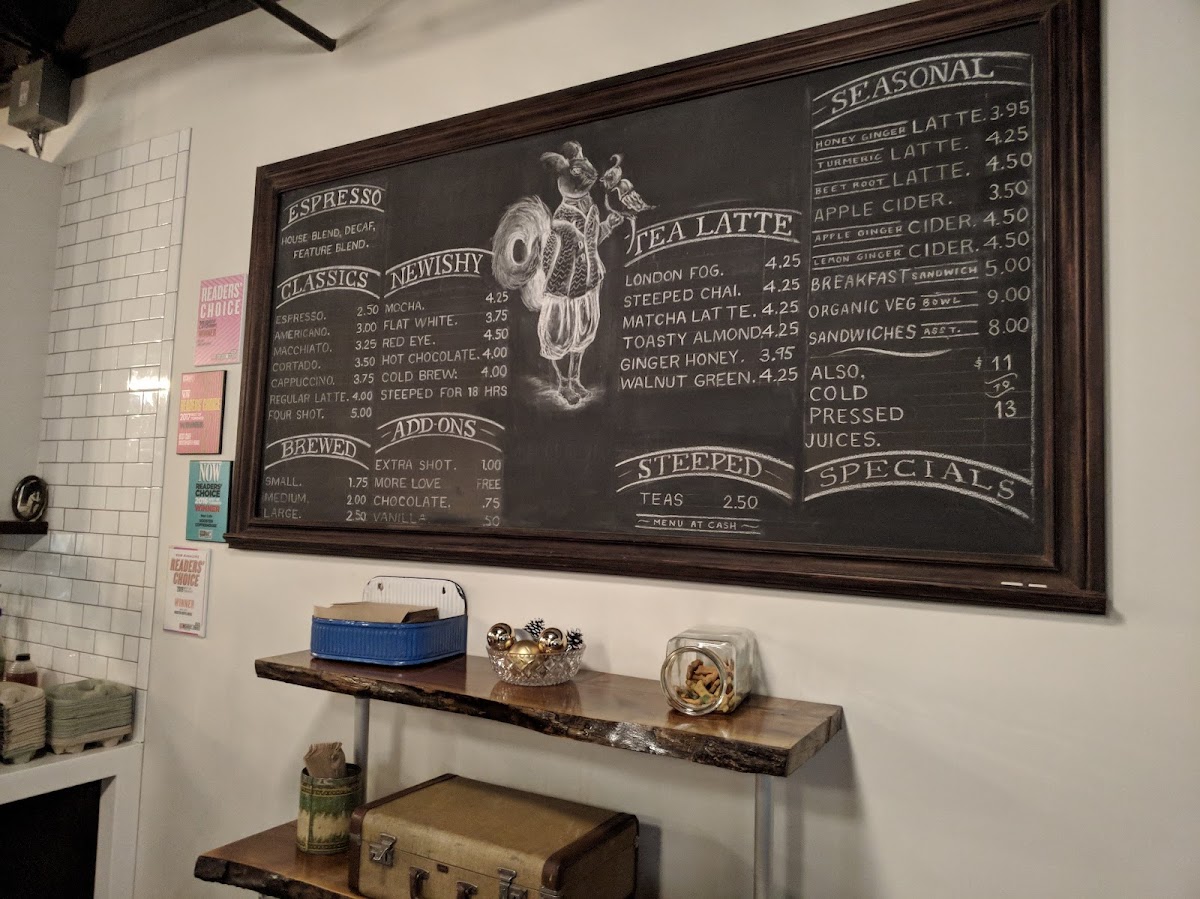 ESPRESSO
HOUSE BLEND, DECAF,
FEATURE BLEND.
CLASSICS
ESPRESSO. 2.50
AMERICANO. 3.00
MACCHIATO. 3.25
CORTADO. 3.50
CAPPUCCINO. 3.75
REGULAR LATTE. 4.00
FOUR SHOT. 5.00
BREWED
SMALL. 1.75
MEDIUM. 2.00
LARGE. 2.50
NEWISHY
MOCHA. 4.25
FLAT WHITE. 3.75
RED EYE. 4.50
HOT CHOCOLATE. 4.00
COLD BREW: 4.00
STEEPED FOR 18 HRS
ADD-ONS
EXTRA SHOT. 1.00
MORE LOVE FREE
CHOCOLATE. .75
.50
TEA LATTE
LONDON FOG. 4.25
STEEPED CHAI. 4.25
MATCHA LATTE. 4.25
TOASTY ALMOND. 4.25
GINGER HONEY. 3.95
WALNUT GREEN. 4.25
STEEPED
TEAS 2.50
MENU AT CASH
SEASONAL
HONEY GINGER LATTE. 3.95
TURMERIC LATTE. 4.25
BEET ROOT LATTE. 4.50
APPLE CIDER. 3.50
APPLE GINGER CIDER. 4.50
LEMON GINGER CIDER. 4.50
BREAKFAST SANDWICH 5.00
ORGANIC VEG BOWL 9.00
SANDWICHES ASST. 8.00
ALSO, $11
COLD TO
PRESSED 13
JUICES.
SPECIALS
READERS'
CHOICE
WINNER
READERS' CHOICE
2017
NOW
READERS'
CHOICE
WINNER
READERS'
CHOICE
WINNER